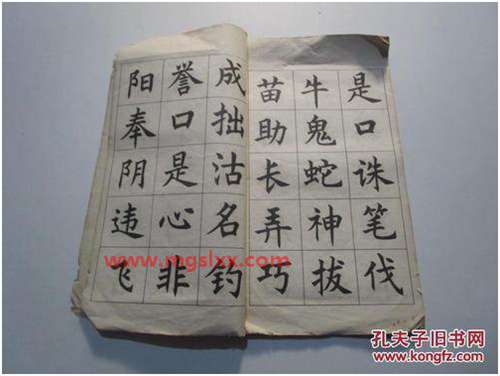 是口诛笔伐
牛鬼蛇神拔
苗助长弄巧
成拙沽名钓
誉口是心非
阳奉阴违飞
www.mgslxx.com
孔夫子旧书网
www.kongfz.com